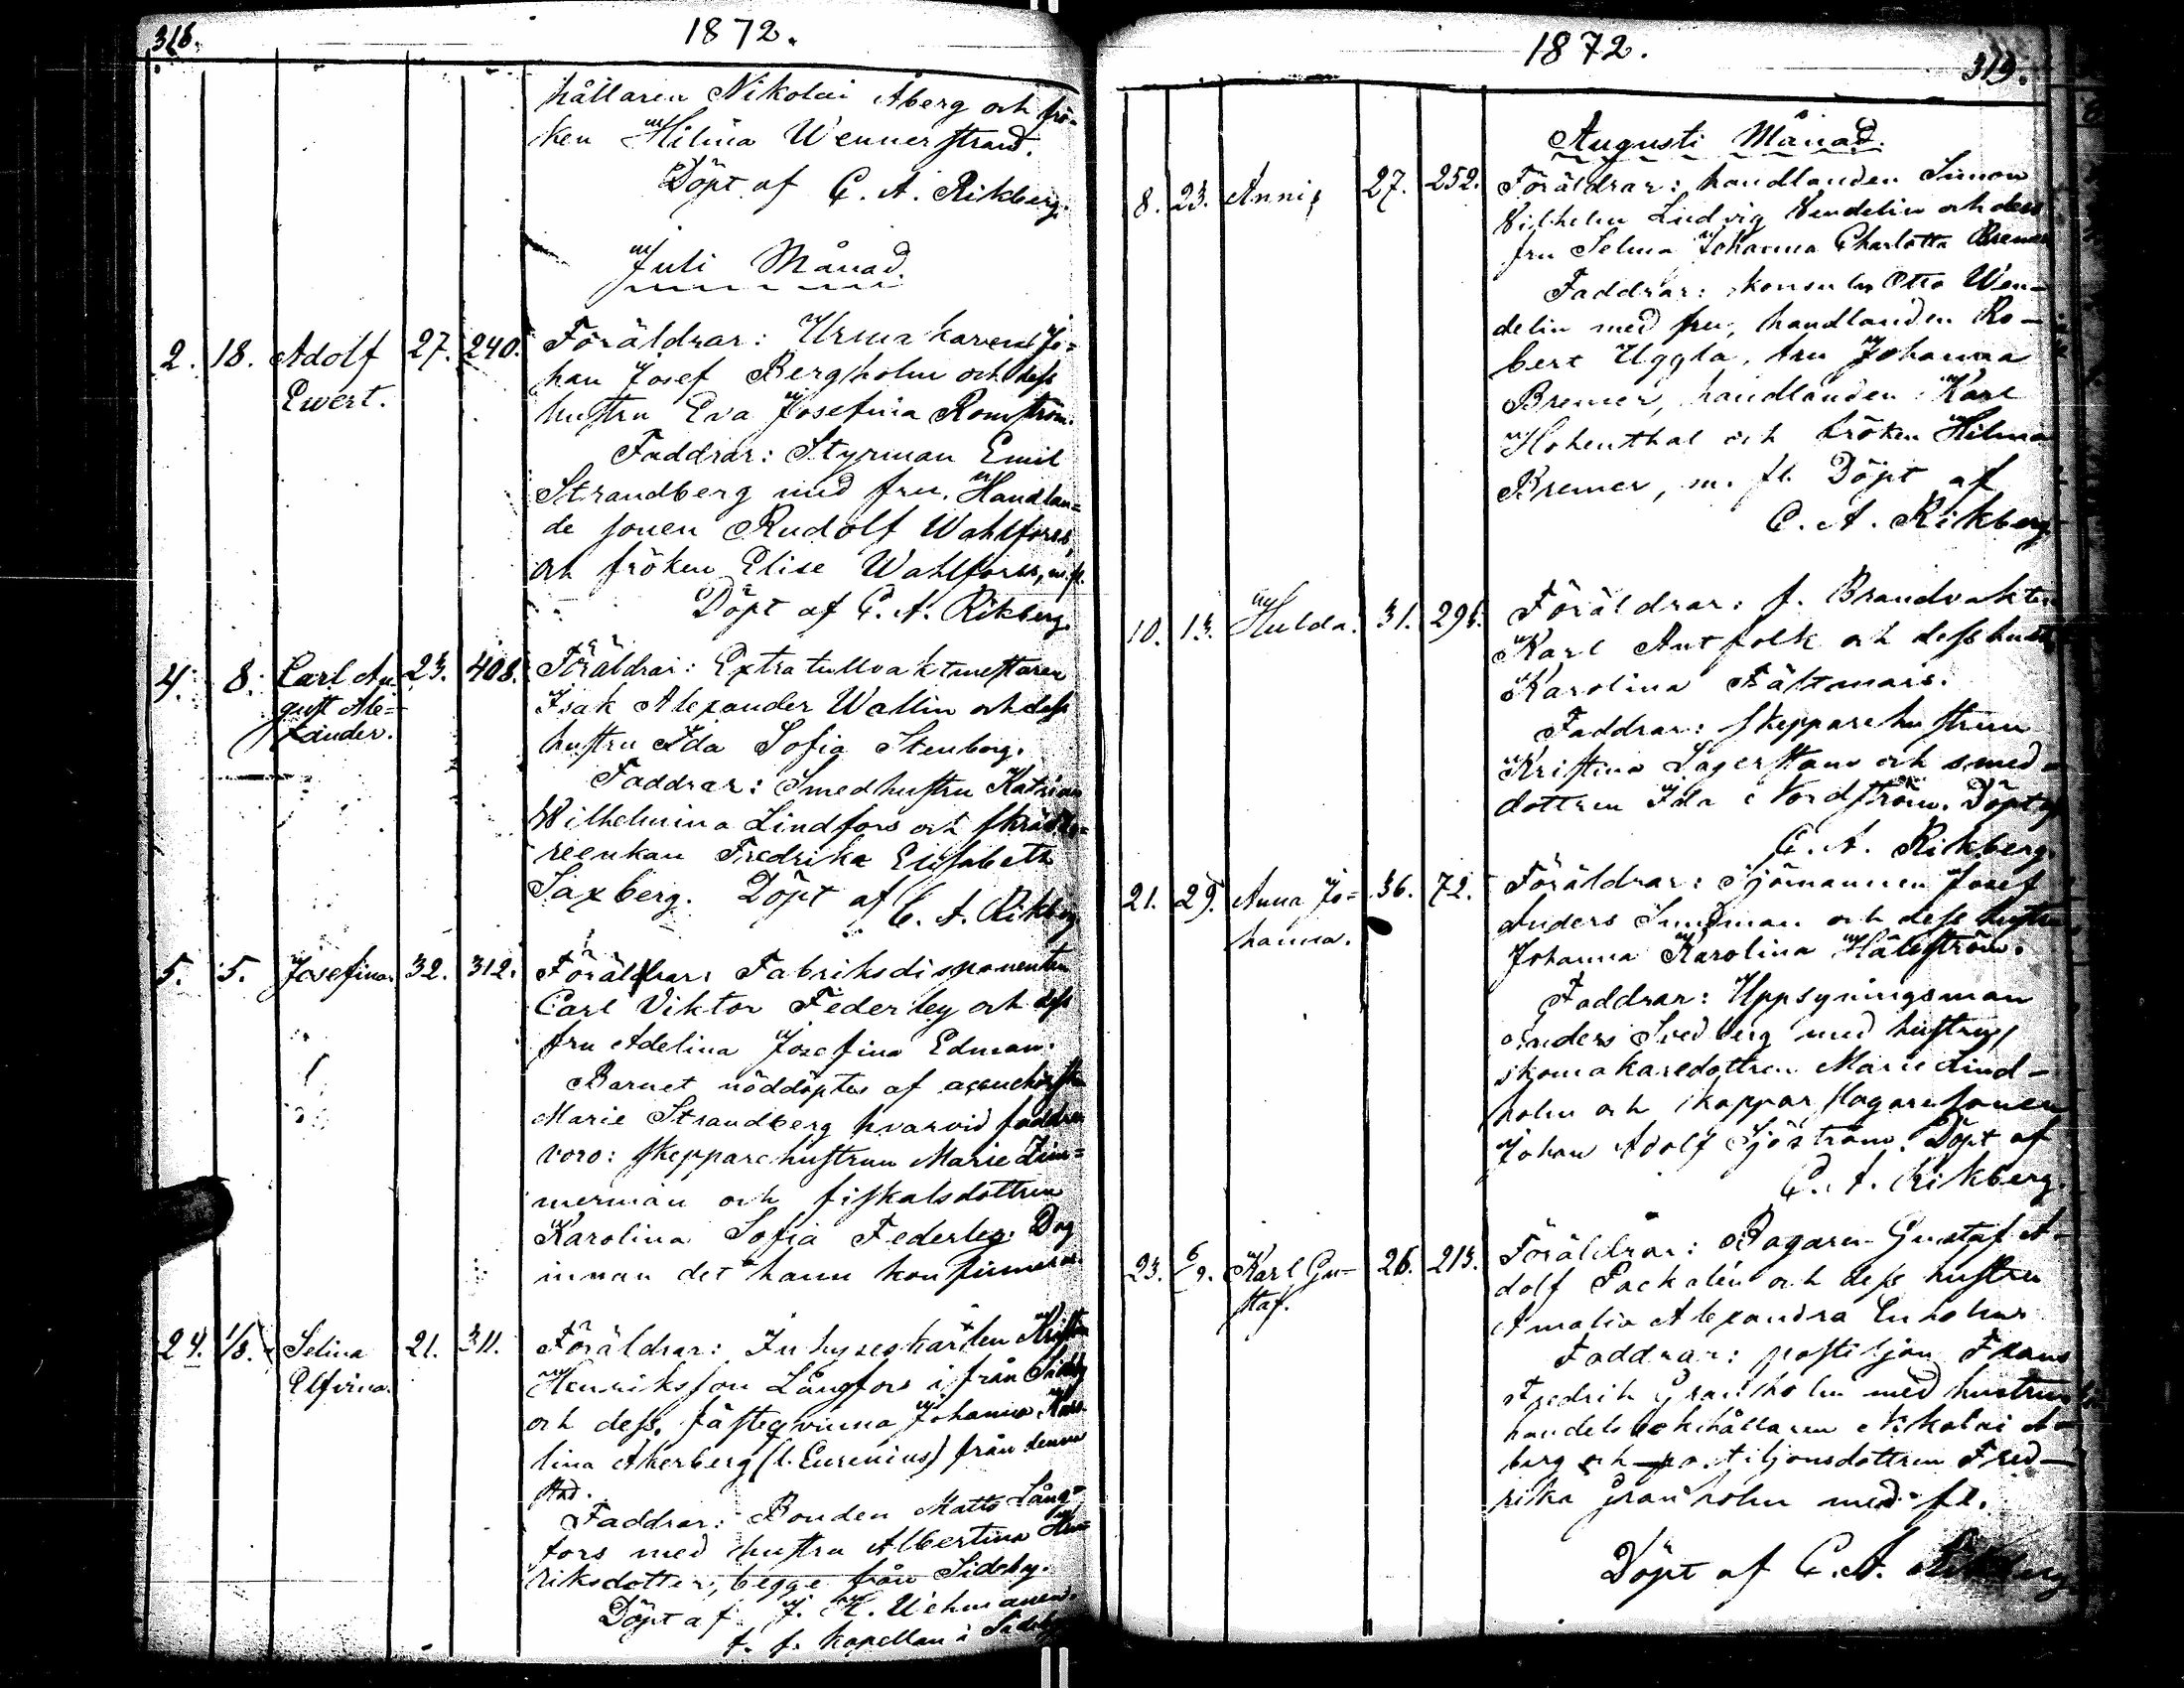 318.
1872.
hållaren Nikolai Åberg och frö-
ken Hilma Wennerstrand.
Döpt af C. A. Rikberg.
Juli Månad.
2. 18. Adolf 27. 240. Föräldrar: Urmakaren Jo=
han Josef Bergholm och dess
Ewert. hustru Eva Josefina Romström.
Faddrar: Styrman Emil
Strandberg med fru, Handlan=
de sonen Rudolf Wahlforss,
och fröken Elise Wahlforss, m. fl.
Döpt af C. A. Rikberg.
4. 8. Carl Au 23. 408. Föräldrar: Extra tullvaktmestaren
gust Ale= Isak Alexander Wallin och dess
xander. hustru Ida Sofia Stenborg.
Faddrar: Smedhustru Katrina
Wilhelmina Lindfors och skrädda=
reenkan Fredrika Elisabeth
Saxberg. Döpt af C. A. Rikberg
5. 5. Josefina. 32. 312. Föräldrar: Fabriksdisponenten
Carl Viktor Federley och dess
fru Adelina Josefina Edman.
Barnet nöddöptes af
Marie Strandberg hvarvid faddrar
voro: skepparehustrun Marie Zim=
merman och fiskalsdottren
Karolina Sofia Federley. Dog
innan det hann konfirmeras.
24. 1/8. Selina 21. 311. Föräldrar: Inhyseskarlen Kristian
Elfvina. Henriksson Långfors ifrån Sideby
och dess fästeqvinna Johanna Karo-
lina Åkerberg (l. Eurenius) från denna
stad.
Faddrar: Bonden Matts Lång=
fors med hustru Albertina Hen-
riksdotter, begge från Sideby.
Döpt af J. K. Uehmanen.
t. f. kapellan i Sideby
1872.
319.
Augusti Månad.
8. 23. Anni, 27. 252. Föräldrar: handlanden Simon
Vilhelm Ludvig Wendelin och dess
fru Selma Johanna Charlotta Bremer
Faddrar: konsuln Otto Wen-
delin med fru, handlanden Ro-
bert Uggla, fru Johanna
Bremer, handlanden Karl
Hohenthal och fröken Hilma
Bremer, m. fl. Döpt af
C. A. Rikberg
10. 13. Hulda. 31. 296. Föräldrar: f. Brandvakten
Karl Antfolk och dess hustru
Karolina Fältmars.
Faddrar: skepparehustrun
Kristina Lagerstam och smed-
dottren Ida Nordström. Döpt af
C. A. Rikberg.
21. 29. Anna Jo= 36. 72. Föräldrar: Sjömannen Josef
hanna. Anders Sundman och dess hustru
Johanna Karolina Hällström.
Faddrar: Uppsyningsman
Anders Svedberg med hustru,
skomakaredottren Marie Lind-
holm och kopparslagaresonen
Johan Adolf Sjöström. Döpt af
C. A. Rikberg.
23. 6/9. Karl Gu- 26. 213. Föräldrar: Bagaren Gustaf A-
staf. dolf Packalén och dess hustru
Amalia Alexandra Enholm
Faddrar: postiljon Frans
Fredrik Granholm med hustru
handelsbokhållaren Nikolai Å-
berg och postiljonsdottren Fred-
rika Granholm med fl.
Döpt af C. A. Rikberg